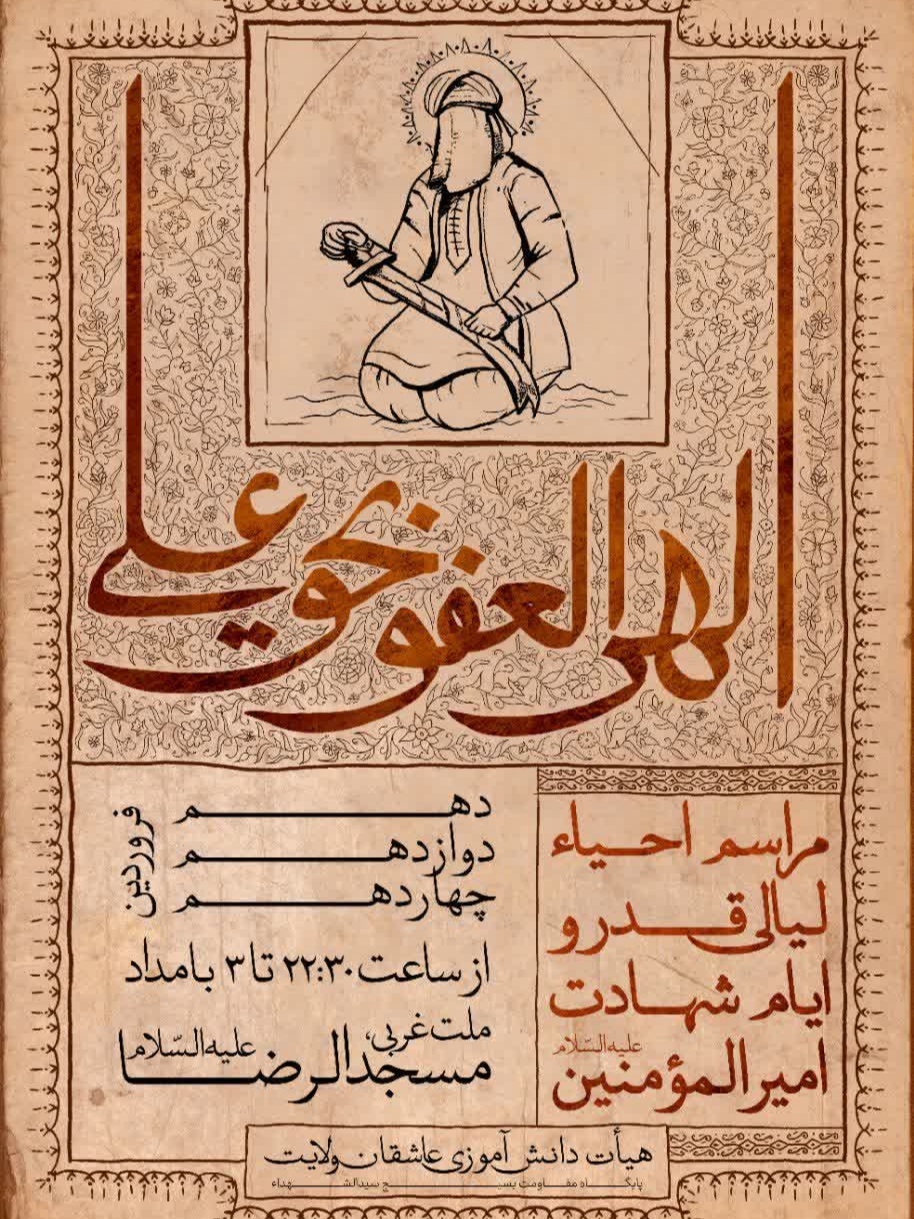 الهی العفو بحق علی
مراسم احیاء
لیالی قدر و
ایام شهادت
امیرالمؤمنین علیه‌السّلام
دهم
دوازدهم
چهاردهم
فروردین
از ساعت ۲۲:۳۰ تا ۳ بامداد
ملت غربی،
مسجدالرضا علیه‌السّلام
هیأت دانش آموزی عاشقان ولایت
پایگاه مقاومت بسیج سیدالشهداء